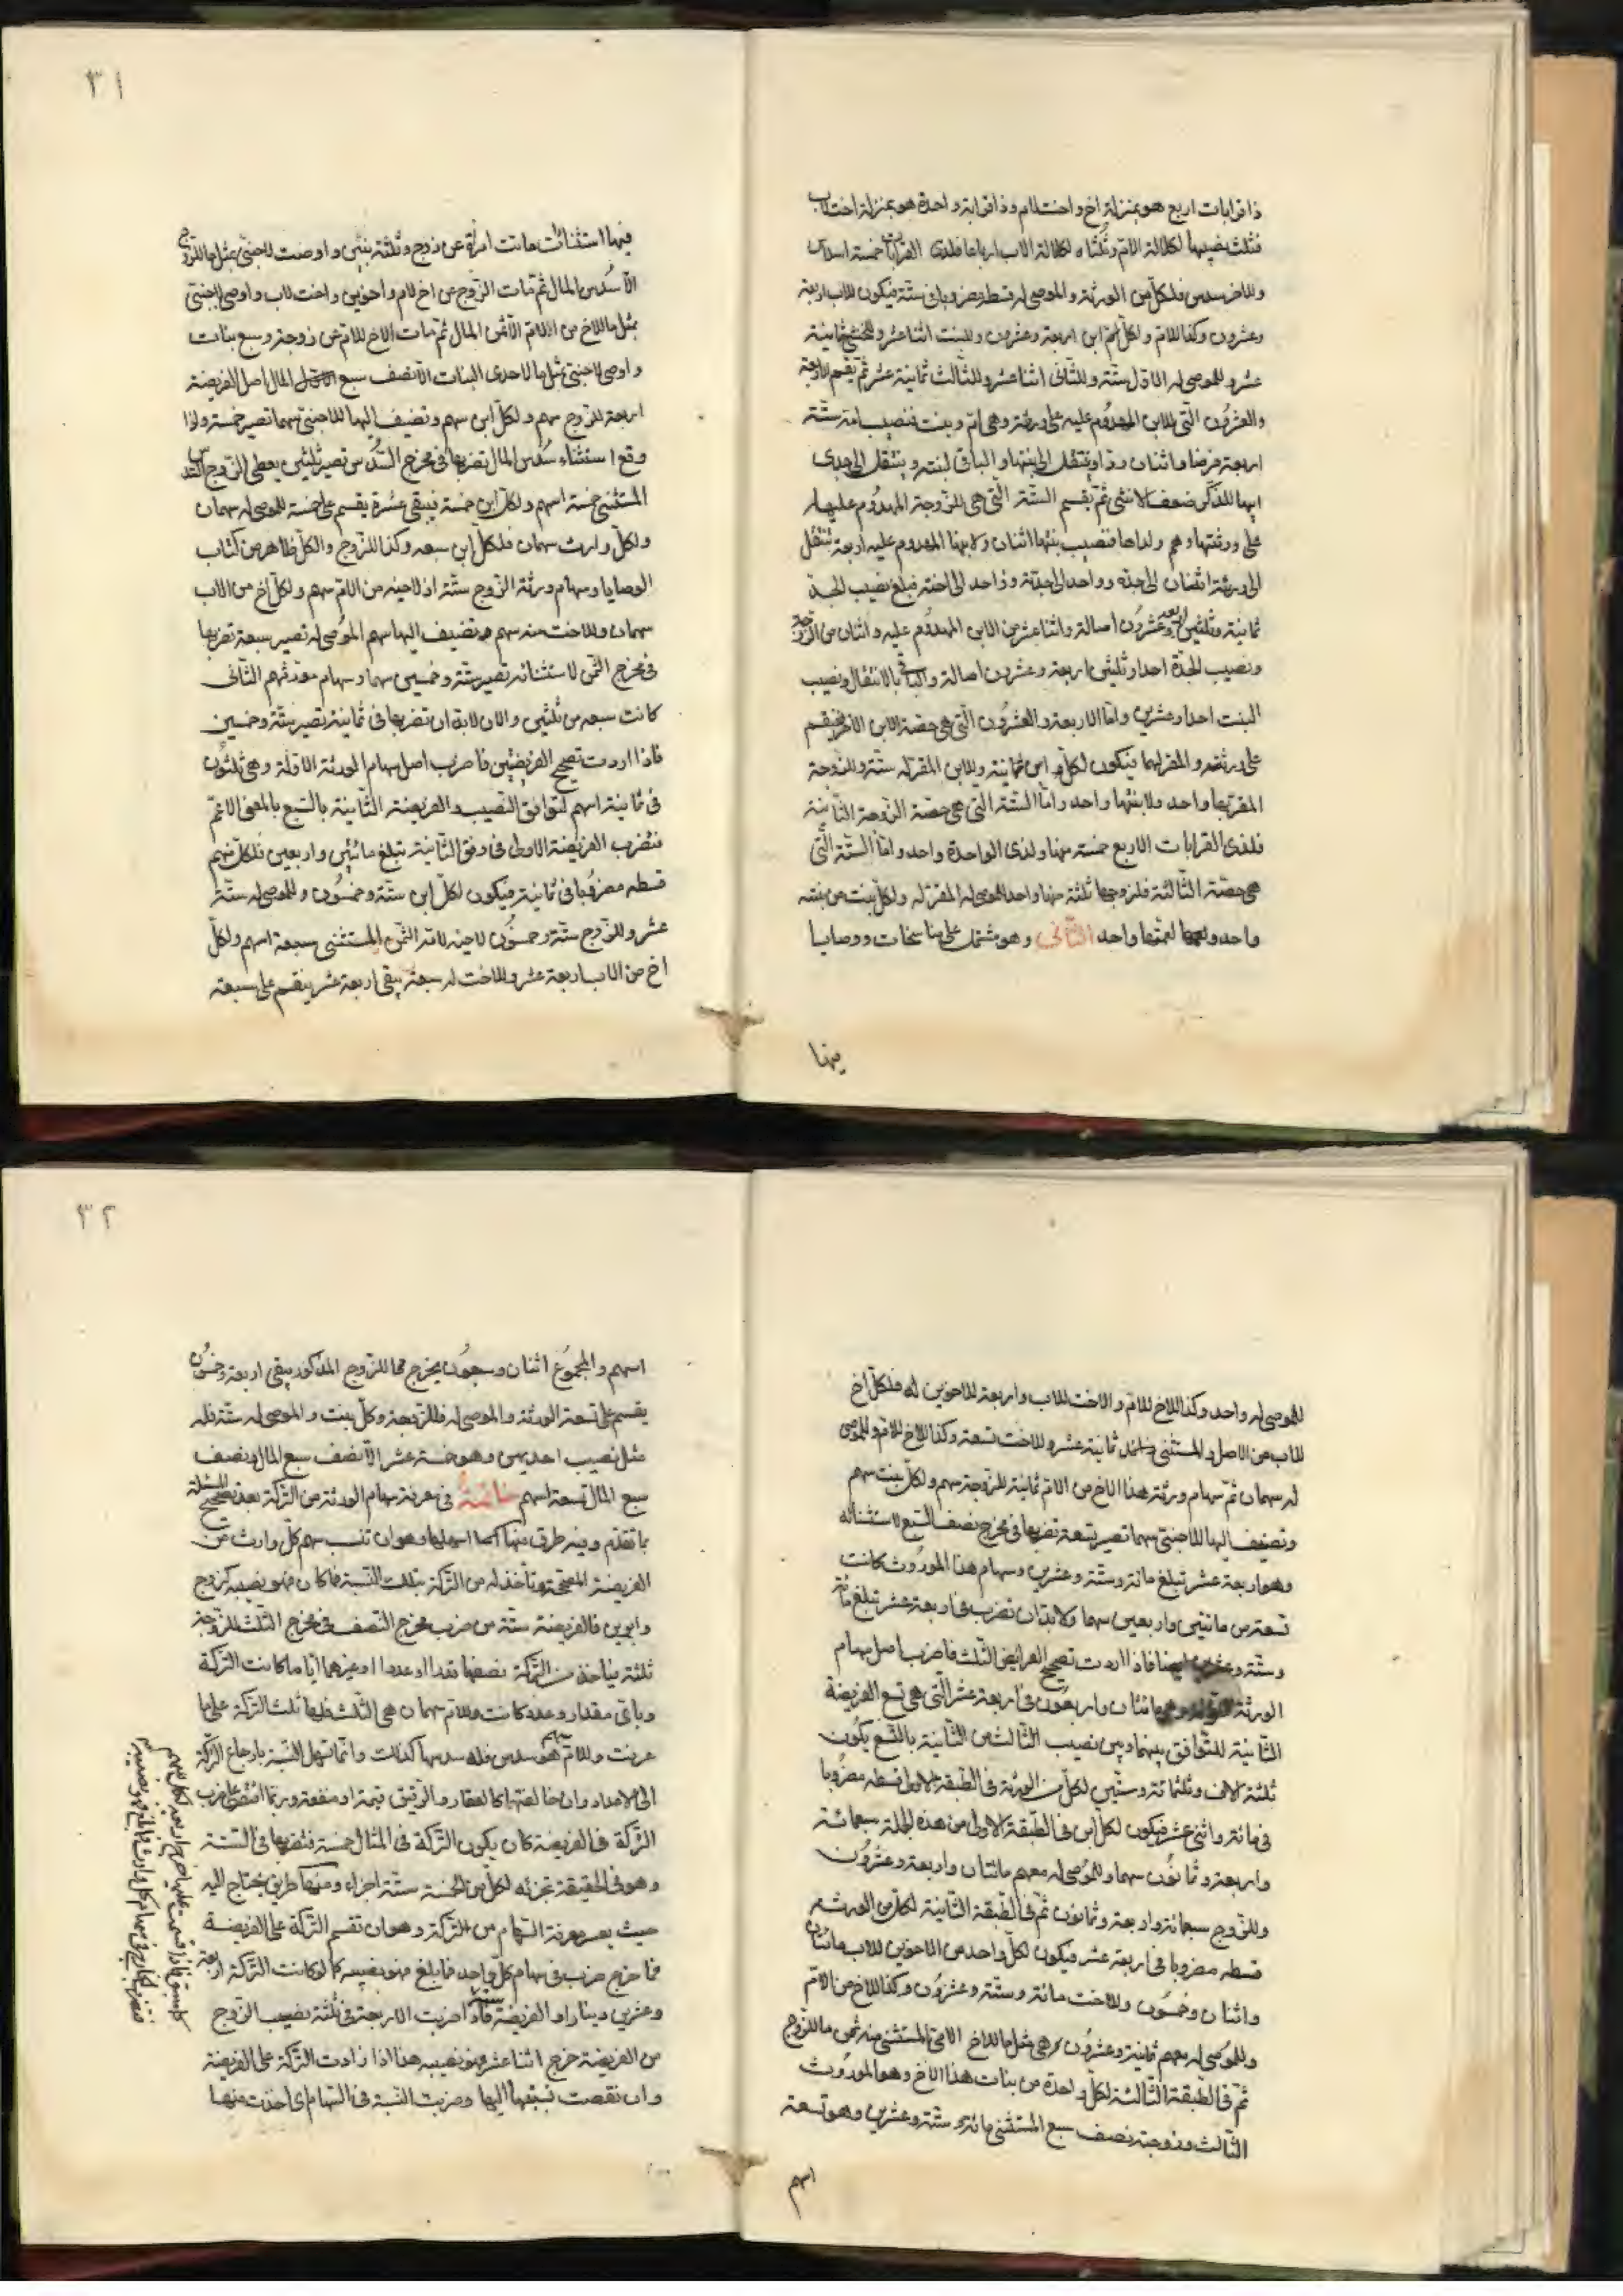 ذا قرابات اربع هو بمنزلة اخ واخت لام وذا قرابة واحدة هو بمنزلة اخت لاب
فثلث نصيبها لكلالة الام وثلثاه لكلالة الاب ارباعا فلذى القرابات خمسة اسداس
وللاخر سدس فلكل من الورثة والموصى له قسطه مضروبا فى ستة فيكون للاب اربعة
وعشرون وكذا للام ولكل ابن اربعة وعشرون وللبنت اثنا عشر وللخنثى ثمانية
عشر وللموصى له الاول ستة وللثانى اثنا عشر وللثالث ثمانية عشر ثم يقسم الاربعة
والعشرون التى للابن المهدوم عليه على ورثته وهى ام وبنت فنصيب امه ستة
اربعة فرضا واثنان ردا وينتقل الى ابنتها والباقى لبنته وينتقل الى جدى
ابيها للذكر ضعف الانثى ثم يقسم الستة التى هى للزوجة المهدوم عليها
على ورثتها وهم ولداها فنصيب بنتها اثنان ولابنها المهدوم عليه اربعة تنتقل
الى ورثته اثنان الى جده وواحد الى جدته وواحد الى اخته فبلغ نصيب الجد
ثمانية وثلثين اربعة وعشرون اصالة واثنا عشر من الابن المهدوم عليه واثنان من الزوجة
ونصيب الجدة احدا وثلثين اربعة وعشرون اصالة والباقى بالانتقال ونصيب
البنت احدا وعشرين واما الاربعة والعشرون التى هى حصة الابن الاخر فيقسم
على ورثته والمقر لهما فيكون لكل ابن ثمانية وللابن المقر له ستة وللزوجة
المقر بها واحد ولابنتها واحد واما الستة التى هى حصة الزوجة الثانية
فلذى القرابات الاربع خمسة منها ولذى الواحدة واحد واما الستة التى
هى حصة الثالثة فلزوجها ثلثة منها وواحد للموصى له المقر له ولكل بنت من بنتيه
واحد ولعمتها واحد الثانى وهو مشتمل على مناسخات ووصايا
فيها
٣١
فيها استثناآت ماتت امرأة عن زوج وثلثة بنين واوصت لاجنبى بمثل ما للزوج
الا سدس المال ثم مات الزوج عن اخ لام واخوين واخت لاب واوصى لاجنبى
بمثل ما للاخ من الام الا ثمن المال ثم مات الاخ للام عن زوجة وسبع بنات
واوصى لاجنبى بمثل ما لاحدى البنات الا نصف سبع المال اصل الفريضة
اربعة للزوج سهم ولكل ابن سهم وتضيف اليها للاجنبى سهما تصير خمسة ولذا
وقع استثناء سدس المال تضربها فى مخرج السدس تصير ثلثين يعطى الزوج السدس
المستثنى خمسة اسهم ولكل ابن خمسة فيبقى عشرة يقسم على خمسة للموصى له سهمان
ولكل وارث سهمان فلكل ابن سبعه وكذا للزوج والكل ظاهر من كتاب
الوصايا وسهام ورثة الزوج ستة اذ لاخيه من الام سهم ولكل اخ من الاب
سهمان وللاخت منه سهم وتضيف اليها سهم الموصى له تصير سبعة تضربها
فى مخرج الثمن لاستثنائه تصير ستة وخمسين سهما وسهام مورثهم الثانى
كانت سبعه من ثلثين والان لابد ان تضربها فى ثمانية تصير ستة وخمسين
فاذا اردت تصحيح الفريضتين فاضرب اصل سهام الورثة الاولة وهى ثلثون
فى ثمانية اسهم لتوافق النصيب والفريضة الثانية بالسبع بالمعنى الاعم
فتضرب الفريضة الاولى فى وفق الثانية تبلغ مائتين واربعين فلكل منهم
قسطه مضروبا فى ثمانية فيكون لكل ابن ستة وخمسون وللموصى له ستة
عشر وللزوج ستة وخمسون لاخيه لامه الثمن المستثنى سبعة اسهم ولكل
اخ من الاب اربعة عشر وللاخت له سبعة يبقى اربعة عشر ينقسم على سبعة
للموصى له واحد وكذا للاخ للام والاخت للاب واربعة للاخوين له فلكل اخ
للاب من الاصل والمستثنى ثمانية عشر وللاخت تسعة وكذا للاخ للام وللموصى
له سهمان ثم سهام ورثة هذا الاخ من الام ثمانية للزوجة سهم ولكل بنت سهم
وتضيف اليها للاجنبى سهما تصير تسعة تضربها فى مخرج نصف السبع لاستثنائه
وهو اربعة عشر تبلغ مائة وستة وعشرين وسهام هذا الموروث كانت
تسعة من مائتين واربعين سهما ولابد ان تضرب فى اربعة عشر تبلغ مائة
وستة وعشرين ايضا فاذا اردت تصحيح الفرايض الثلث فاضرب اصل سهام
الورثة مائتان واربعون فى اربعة عشر التى هى تسع الفريضة
الثانية للتوافق بينها وبين نصيب الثالث من الثانية بالتسع يكون
ثلثة الاف وثلثمائة وستين لكل من الورثة فى الطبقة الاولى قسطه مضروبا
فى مائة واثنى عشر فيكون لكل ابن فى الطبقة الاولى من هذه الجملة سبعمائة
واربعة وثمانون سهما وللموصى له معهم مائتان واربعة وعشرون
وللزوج سبعمائة واربعة وثمانون ثم فى الطبقة الثانية لكل من الورثة
قسطه مضروبا فى اربعة عشر فيكون لكل واحد من الاخوين للاب مائتان
واثنان وخمسون وللاخت مائة وستة وعشرون وكذا للاخ من الام
وللموصى له معهم ثمانية وعشرون هى مثل ما للاخ الامى المستثنى منه ثمن ما للزوج
ثم فى الطبقة الثالثة لكل واحدة من بنات هذا الاخ وهو الموروث
الثالث وزوجته نصف سبع المستثنى مائة وستة وعشرين وهو تسعة
اسهم
٣٢
اسهم والمجموع اثنان وسبعون يخرج مما للزوج المذكور يبقى اربعة وخمسون
يقسم على تسعة الورثة والموصى له فللزوجة وكل بنت والموصى له ستة فله
مثل نصيب احديهن وهو خمسة عشر الا نصف سبع المال ونصف
سبع المال تسعة اسهم خاتمة فى معرفة سهام الورثة من التركة بعد تصحيح المسئلة
بما تقدم وفيه طرق منها اسهلها وهو ان تنسب سهم كل وارث من
الفريضة المصححة وتأخذ له من التركة بتلك النسبة فما كان فهو نصيبه كزوج
وابوين فالفريضة ستة من ضرب مخرج النصف فى مخرج الثلث للزوج
ثلثة فياخذ من التركة نصفها نقدا او عددا او غيرهما ايا ما كانت التركة
وباى مقدار وعدد كانت وللام سهمان هى الثلث فلها ثلث التركة على ما
عرفت وللاب سهم هو سدس فله سدسها كذلك وانما تسهل النسبة بارجاع التركة
الى الاعداد وان خالفتها كالعقار والرقيق قيمة او منفعة وربما افتقر الى ضرب
التركة فى الفريضة كان يكون التركة فى المثال خمسة فتضربها فى الستة
وهو فى الحقيقة تجزئه لكل من الخمسة ستة اجزاء ومنها طريق يحتاج اليه
حيث يعسر معرفة السهام من التركة وهو ان تقسم التركة على الفريضة
فما خرج ضرب فى سهام كل واحد فما بلغ فهو نصيبه كما لو كانت التركة اربعة
وعشرين دينارا والفريضة ستة فاذا ضربت الاربعة فى ثلثة نصيب الزوج
من الفريضة خرج اثنا عشر فهو نصيبه هذا اذا زادت التركة على الفريضة
وان نقصت نسبتها اليها وضربت النسبة فى السهام اى اخذت منها